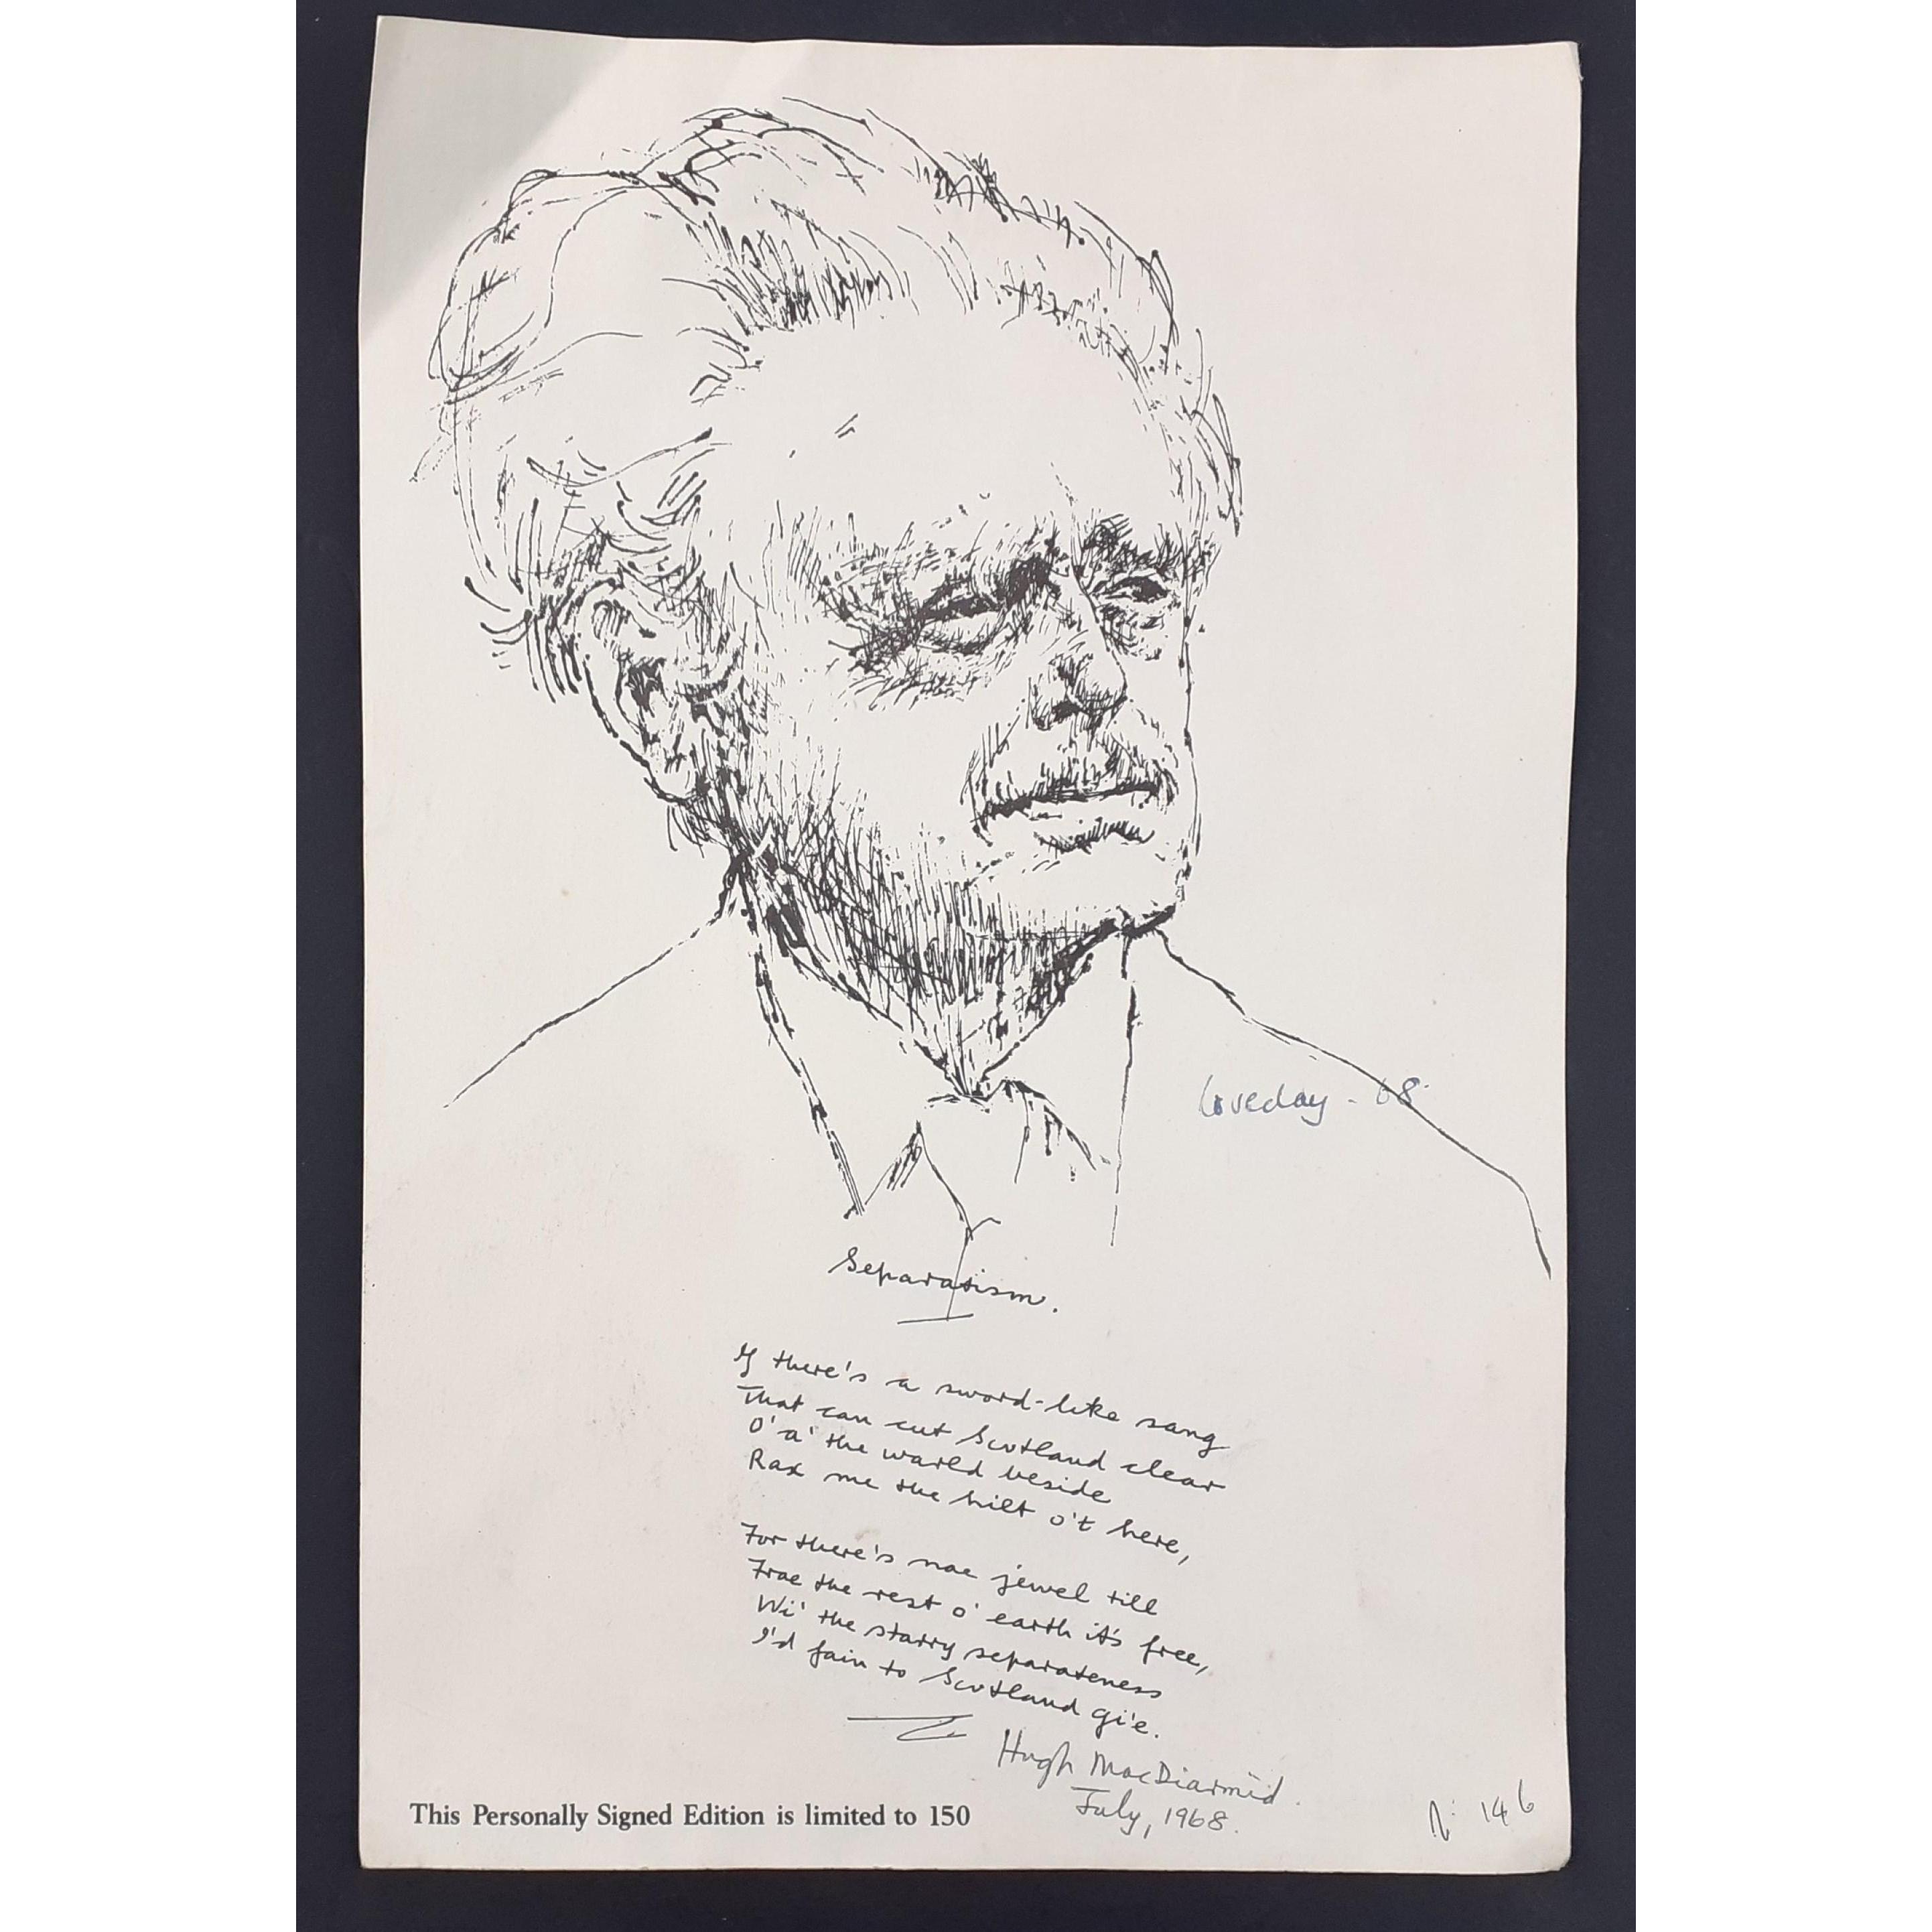 Loveday - 68
Separatism.
If there's a sword-like sang
That can cut Scotland clear
O' a' the warld beside
Rax me the hilt o't here,
For there's nae jewel till
Frae the rest o' earth it's free,
Wi' the starry separateness
I'd fain to Scotland gi'e.
Hugh MacDiarmid.
July, 1968.
This Personally Signed Edition is limited to 150
No 146